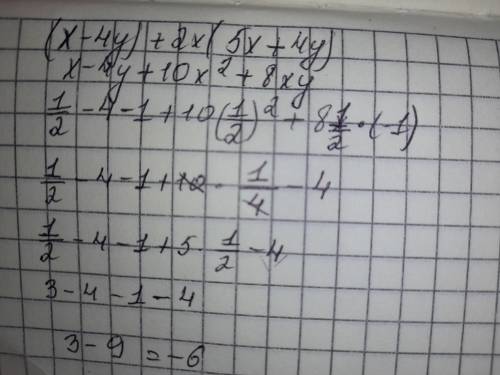 (x-4y)+2x(5x+4y)
x-4y+10x²+8xy
1/2-4-1+10(1/2)²+8 1/2·(-1)
1/2-4-1+10·1/4-4
1/2-4-1+5·1/2-4
3-4-1-4
3-9=-6